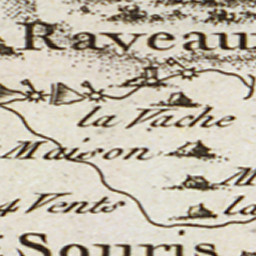 Raveau
la Vache
Maison
M
4 Vents
la
Souris